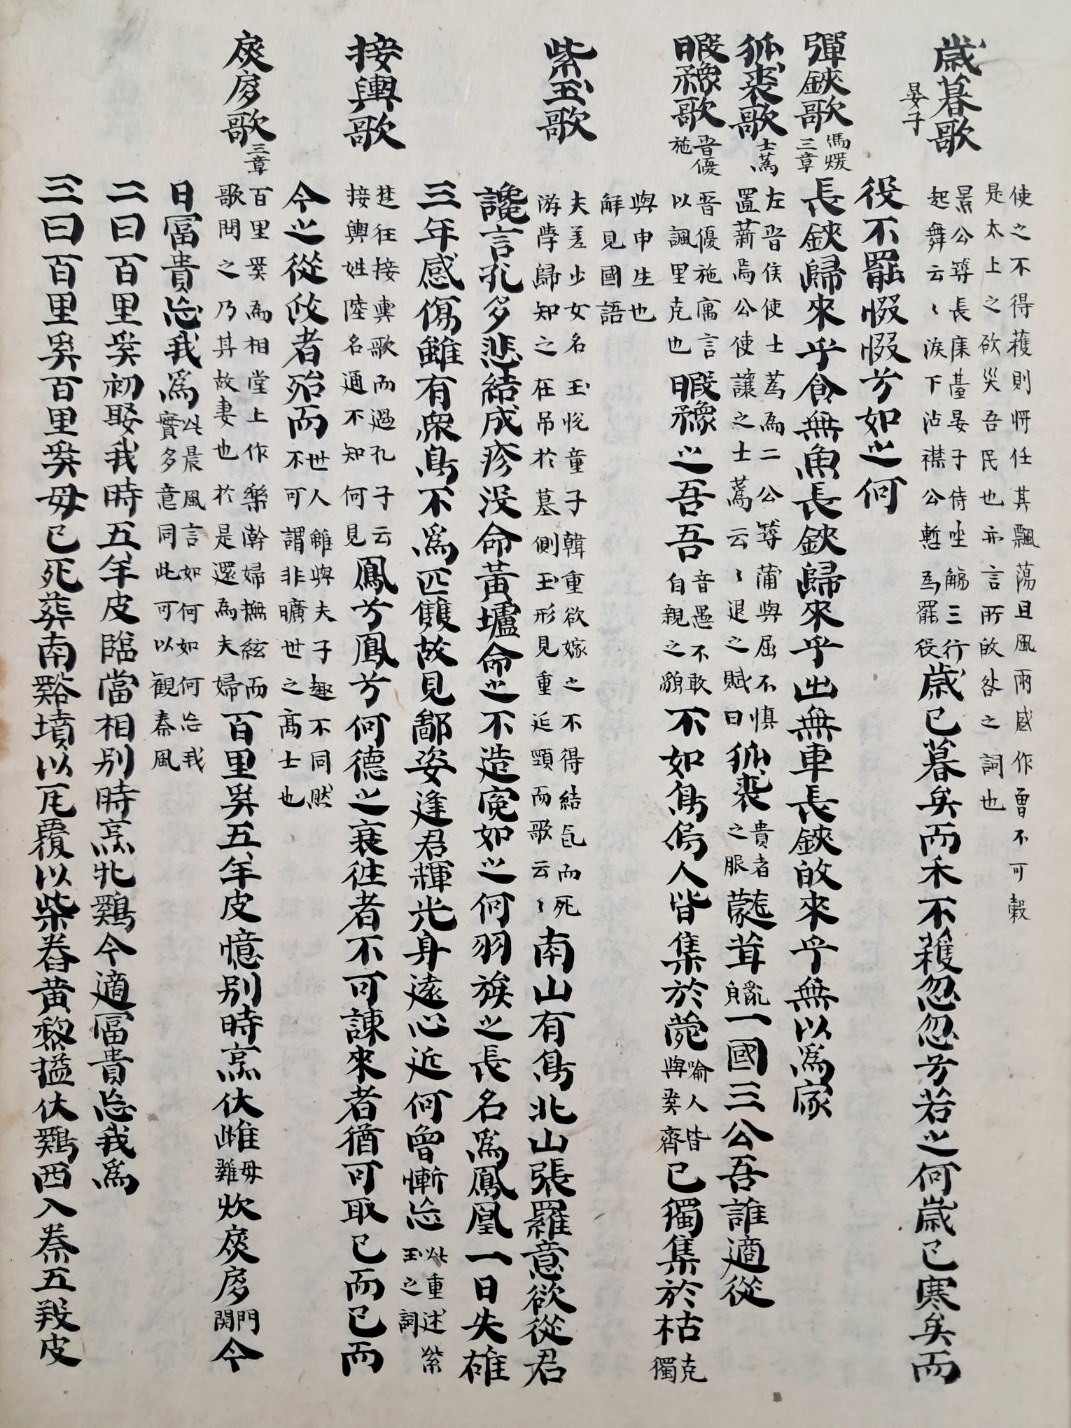 使之不得穫則惸任其飄蕩且風雨感作曾不可穀
是太上之欲災吾民也亦言所敀咎之詞也
歲暮歌
晏子
景公築長庲臺晏子侍坐觴三行
起舞云〻淚下沾襟公慙焉罷役
歲已暮矣而禾不穫忽忽兮若之何歲已寒矣而
役不罷惙惙兮如之何
彈鋏歌
馮煖
三章
長鋏歸來乎食無魚長鋏歸來乎出無車長鋏敀來乎無以爲家
狐裘歌
士蒍
左晋侯使士蒍為二公築蒲與屈不慎
置薪焉公使讓之士蒍云〻退之賦曰
狐裘
貴者
之服
蒙茸
亂
皃
一國三公吾誰適從
暇豫歌
晋優
施
晋優施寓言
以諷里克也
暇豫之吾吾
音愚不敢
自親之貌
不如鳥烏人皆集於菀
喻人皆
與奚齊
已獨集於枯
克
獨
與申生也
觧見國語
紫玉歌
夫差少女名玉悅童子韓重欲嫁之不得結氣而死
游學歸知之徃吊於墓側玉形見重延頸而歌云〻
南山有鳥北山張羅意欲從君
讒言孔多悲結成疹没命黃壚命之不造寃如之何羽族之長名爲鳳凰一日失雄
三年感傷雖有衆鳥不爲匹雙故見鄙姿逢君輝光身遠心近何曾慚忘
此重述紫
玉之詞
接輿歌
楚狂接輿歌而過孔子云
接輿姓陸名通不知何見
鳳兮鳳兮何德之衰徃者不可諫來者猶可取已而已而
今之從政者殆而
世人雖與夫子趣不同然
不可謂非曠世之高士也
扊扅歌
三章
百里奚為相堂上作樂澣婦撫絃而
歌問之乃其故妻也於是還為夫婦
百里奚五羊皮憶別時烹伏雌
母
雞
炊扊扅
門
関
今
日富貴忘我爲
此晨風言如何如何忘我
實多意同此可以觀秦風
二曰百里奚初娶我時五羊皮臨當相別時烹牝鷄今適富貴忘我爲
三曰百里奚百里奚母已死葬南谿墳以瓦覆以柴舂黄黎搤伏鷄西入秦五羖皮